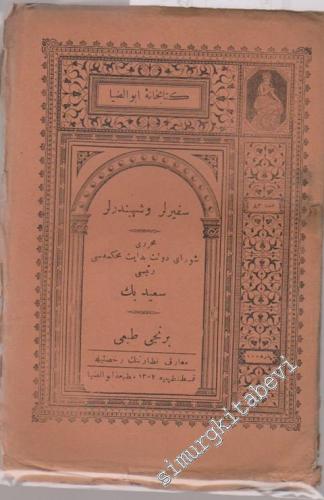 كتابخانهٔ ابوالضيا
عدد ٥٣
سفيرلر و شهبندرلر
محررى
شوراى دولت بدايت محكمه‌سى
رئيسى
سعيد بك
برنجى طبعى
معارف نظارتنك رخصتيله
قسطنطينيه ١٣٠٧ - مطبعهٔ ابوالضيا
simurgkitabevi